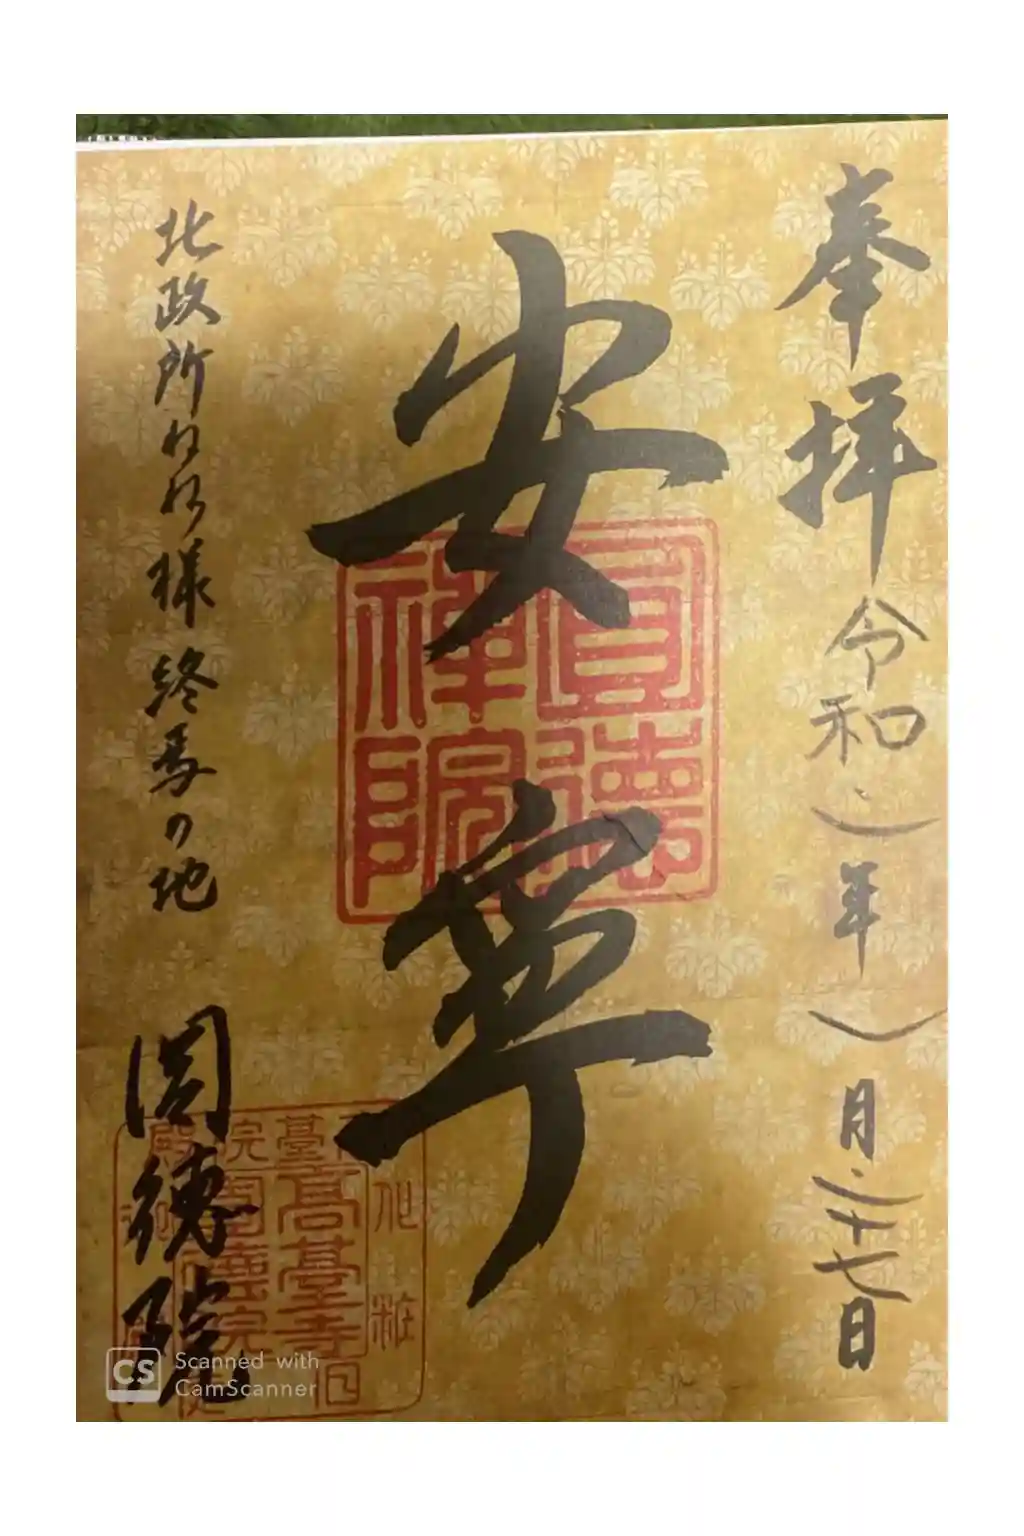 奉拝 令和二年一月二十七日
安寧
圓徳
禅院
北政所ねね様 終焉の地
圓徳院
高臺寺
Scanned with
CamScanner